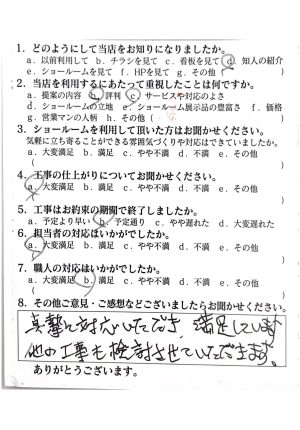 1. どのようにして当店をお知りになりましたか。
a. 以前利用して b. チラシを見て c. 看板を見て d. 知人の紹介
e. ショールームを見て f. HPを見て g. その他(
2. 当店を利用するにあたって重視したことは何ですか。
a. 提案の内容 b. 評判 c. サービスや対応のよさ
d. ショールームの立地 e. ショールーム展示品の豊富さ f. 価格
g. 営業マンの人柄 h. その他(
3. ショールームを利用して頂いた方はお聞かせください。
気軽に立ち寄ることができる雰囲気づくりや対応はできていましたか。
a. 大変満足 b. 満足 c. やや不満 d. 不満 e. その他
(
4. 工事の仕上がりについてお聞かせください。
a. 大変満足 b. 満足 c. やや不満 d. 不満 e. その他
(
5. 工事はお約束の期間で終了しましたか。
a. 予定より早い b. 予定通り c. やや遅れた d. 大変遅れた
6. 担当者の対応はいかがでしたか。
a. 大変満足 b. 満足 c. やや不満 d. 不満 e. その他
(
7. 職人の対応はいかがでしたか。
a. 大変満足 b. 満足 c. やや不満 d. 不満 e. その他
(
8. その他ご意見・ご感想などございましたらお聞かせください。
真摯に対応いただき、満足しています
他の工事も検討させていただきます。
ありがとうございます。